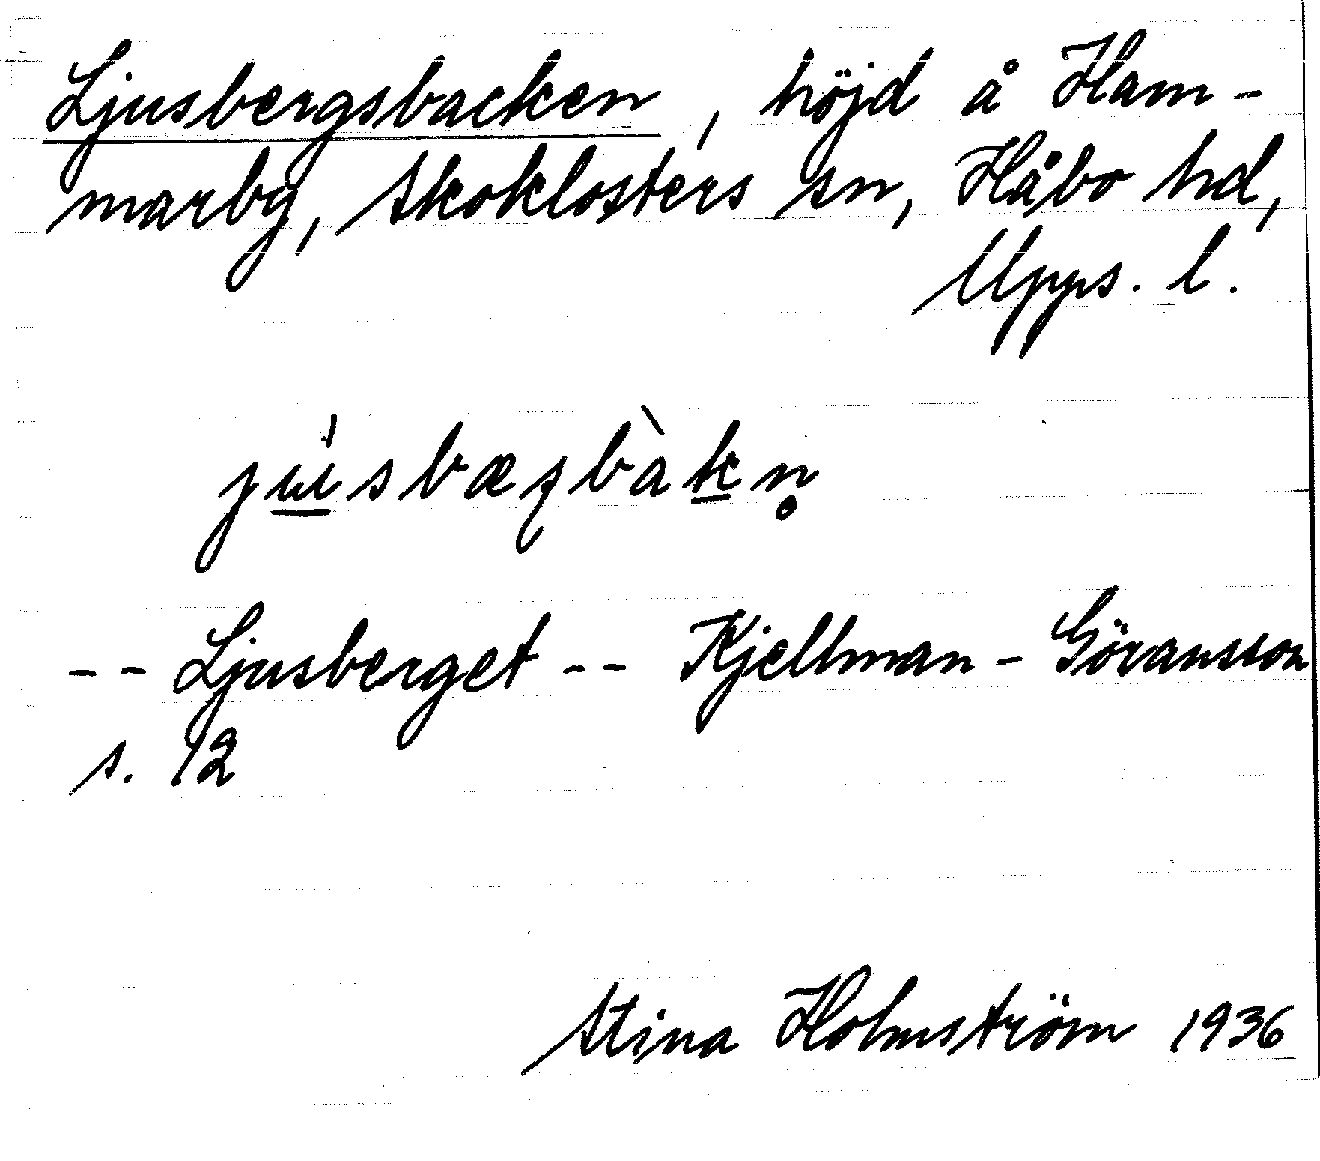 Ljusbergsbacken, höjd å Ham-
marby, Skoklosters sn, Håbo hd,
Upps. l.
jɯ́sbæʒbàkn̥
-- Ljusberget -- Kjellman - Göransson
s. 12
Stina Holmström 1936